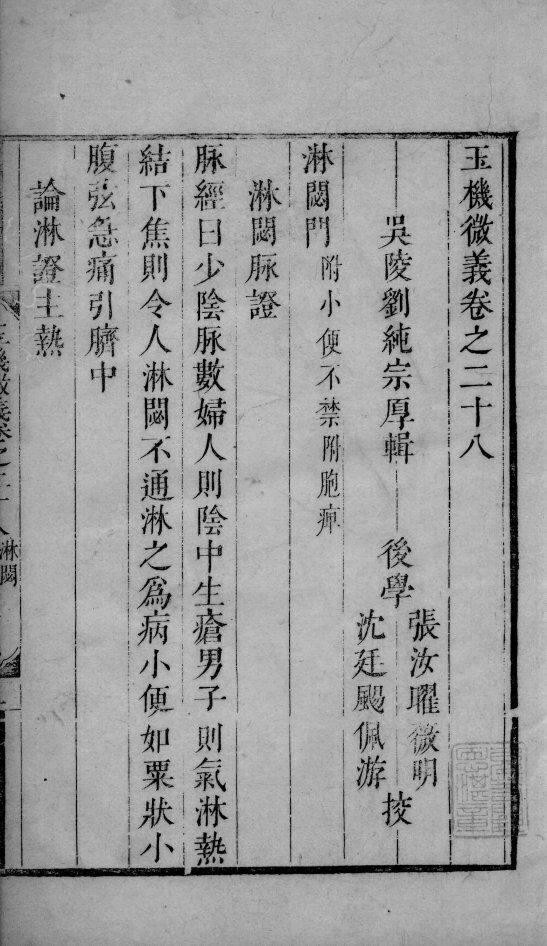 玉機微義卷之二十八
吳陵劉純宗厚輯 後學 張汝曜薇明 沈廷颺佩游 挍
淋閟門 附小便不禁附胞痺
淋閟脉證
脉經曰少陰脉數婦人則陰中生瘡男子則氣淋熱
結下焦則令人淋閟不通淋之爲病小便如粟狀小
腹弦急痛引臍中
論淋證主熱
玉機微義卷之二十八 淋閟 一